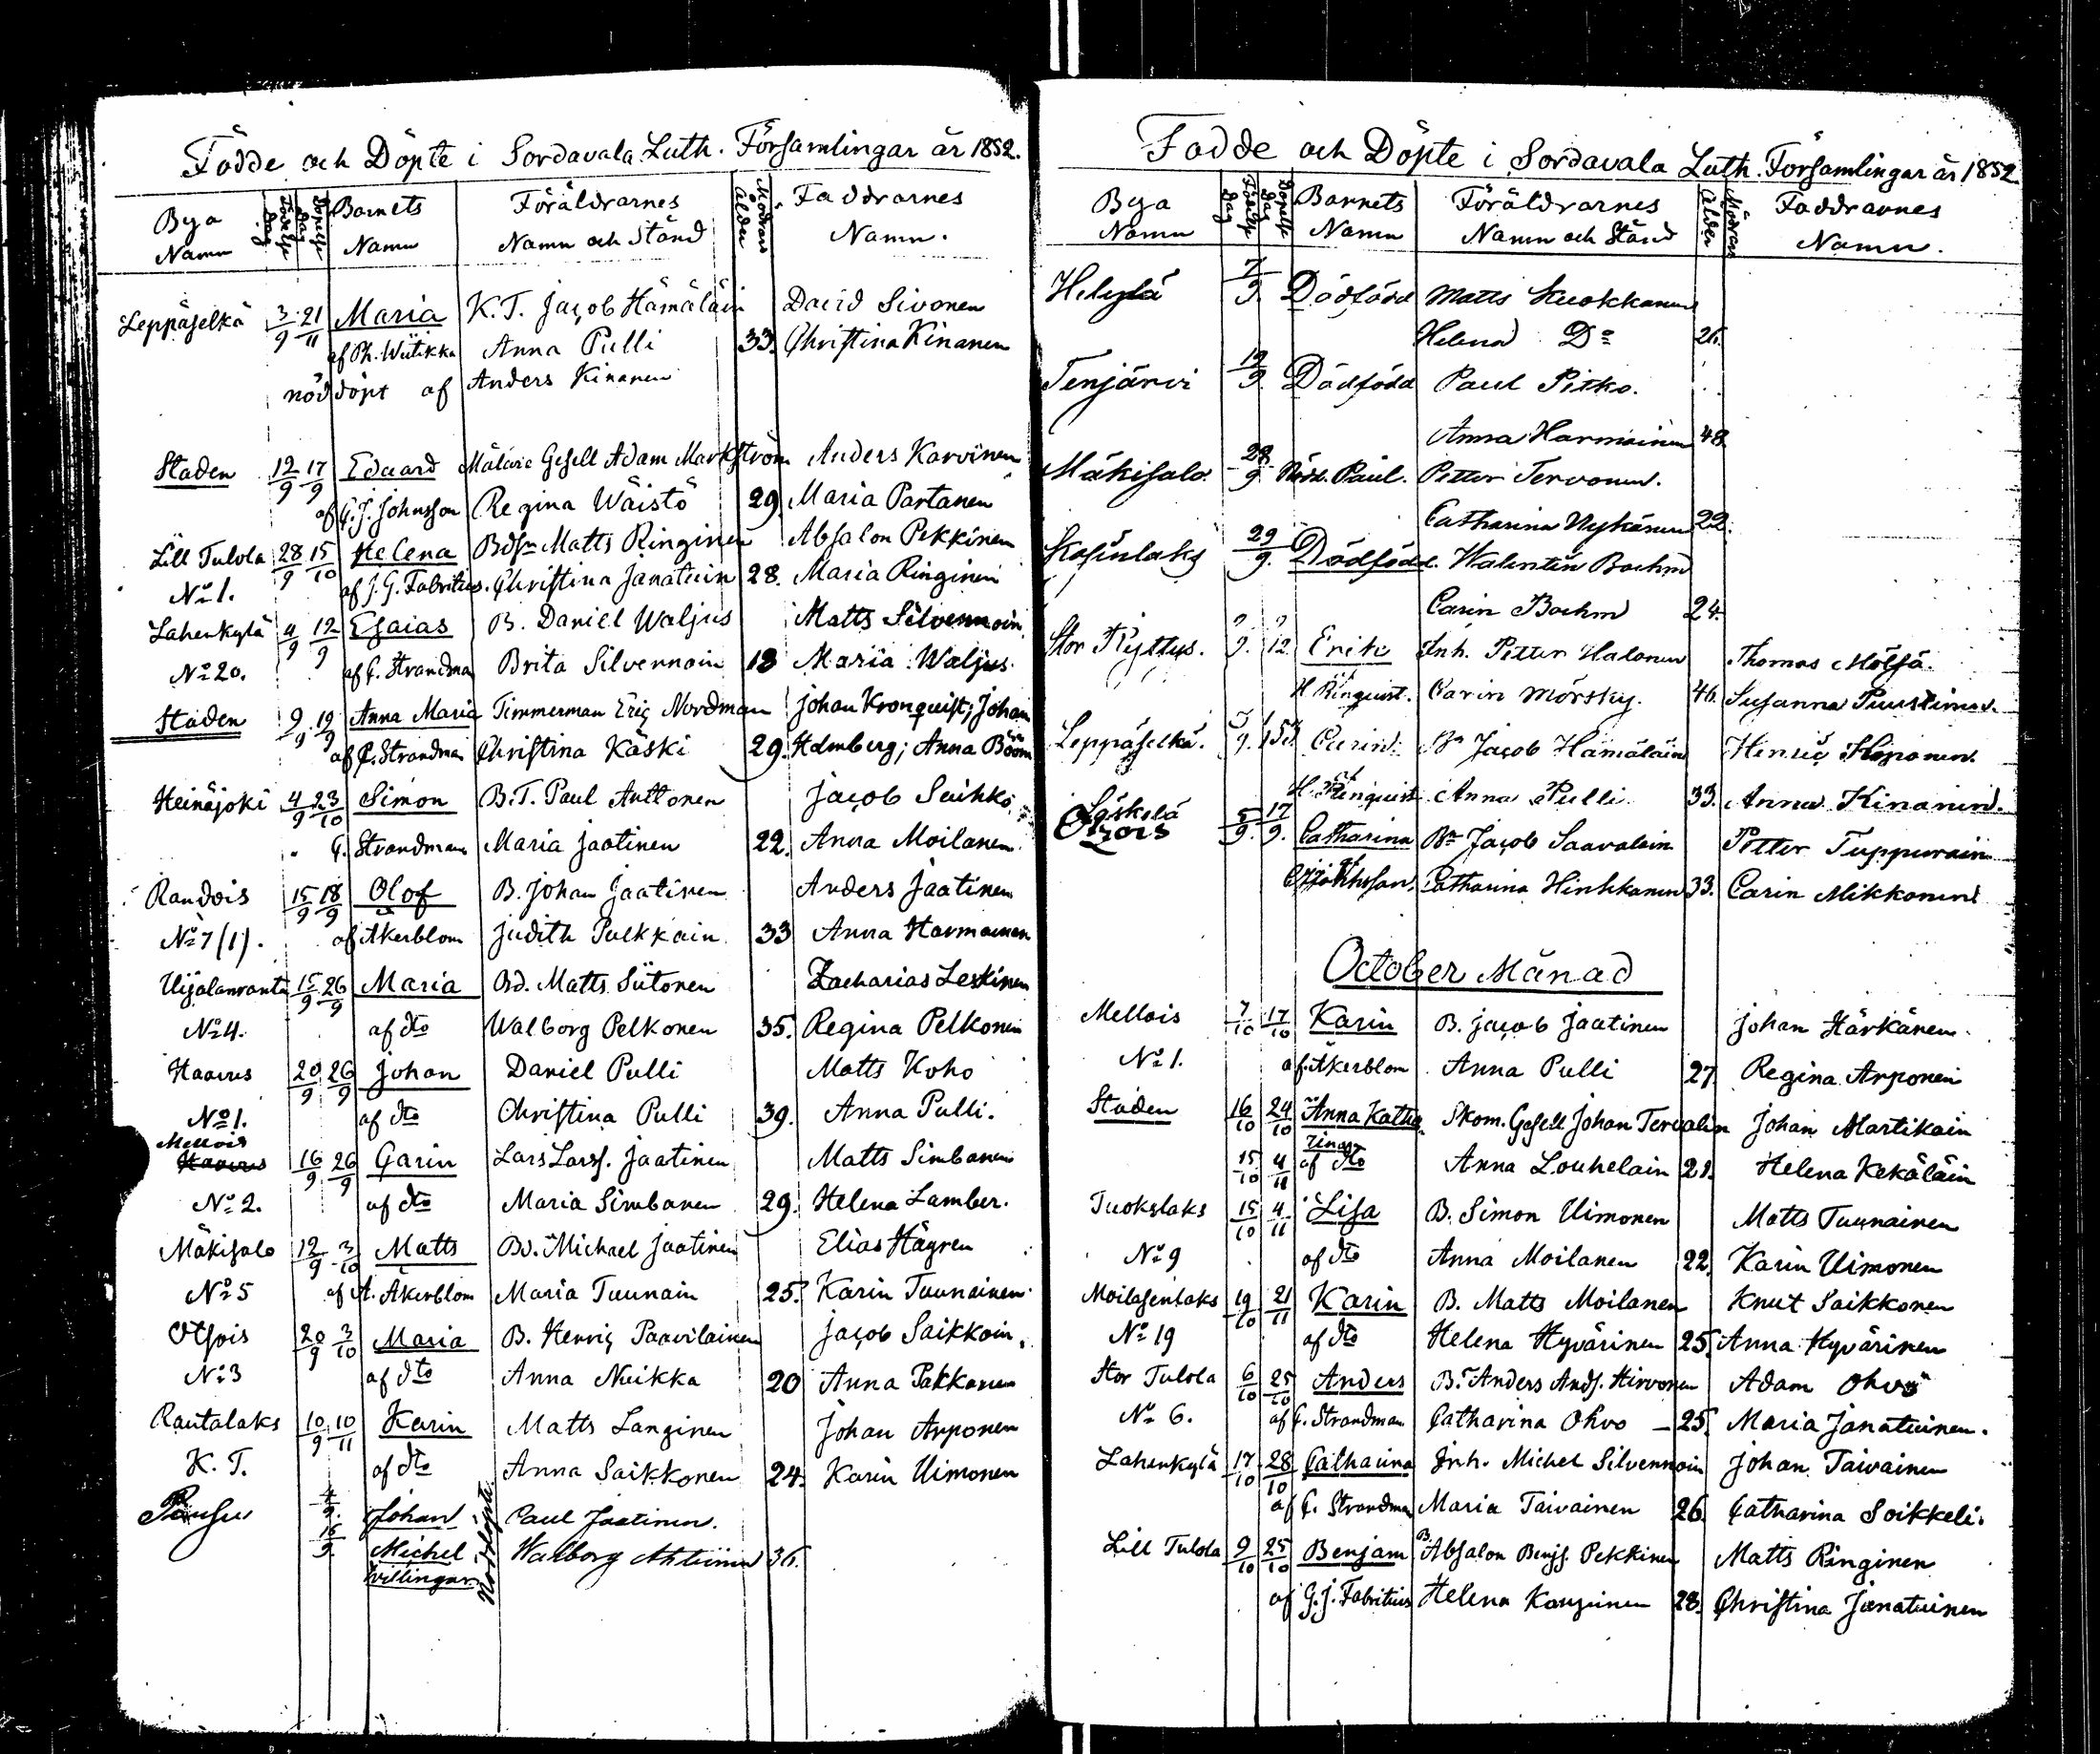 Födde och Döpte i Sordavala Luth. Församlingar år 1852.
Bya Namn Födelse Dag Döpelse Dag Barnets Namn Föräldrarnes Namn och Stånd Modrens ålder Faddrarnes Namn.
Leppäselkä 3/9 21/11 Maria K. T. Jacob Hämäläin David Sivonen
af Ph. Wiitikka Anna Pulli 33. Christina Kinanen
nöddöpt af Anders Kinanen
Staden 12/9 17/9 Edvard Målare Gesell Adam Markström Anders Karvinen
af G. J. Johnsson Regina Wäistö 29 Maria Partanen
Lill Tulola 28/9 15/10 Helena Bdsn Matts Ringinen Absalon Pekkinen
No 1. af J. G. Fabritius. Christina Janatuin 28. Maria Ringinen
Lahenkylä 4/9 12/9 Esaias B. Daniel Waljus Matts Silvennoin
No 20. af C. Strandman Brita Silvennoin 18 Maria Waljus.
Staden 9/9 19/9 Anna Maria Timmerman Eric Nordman Johan Kronquist; Johan
af C. Strandman Christina Käski 29. Holmberg; Anna Böom
Heinäjoki 4/9 23/10 Simon B. T. Paul Anttonen Jacob Saikko
C. Strandman Maria Jaatinen 22. Anna Moilanen
Randois 15/9 18/9 Olof B. Johan Jaatinen Anders Jaatinen
No 7 (1). af Åkerblom Judith Pulkkain 33 Anna Harmainen
Uijalanranta 15/9 26/9 Maria Bd. Matts Siitonen Zacharias Leskinen
No 4. af dto Walborg Pelkonen 35. Regina Pelkonen
Haavus 20/9 26/9 Johan Daniel Pulli Matts Koho
No 1. af dto Christina Pulli 39. Anna Pulli.
Mellois
Haavus 16/9 26/9 Carin Lars Larss. Jaatinen Matts Simbanen
No 2. af dto Maria Simbanen 29. Helena Lamber.
Mäkisalo 12/9 3/10 Matts Bd. Michael Jaatinen Elias Hägren
No 5 af A. Åkerblom Maria Tuunain 25. Karin Tuunainen
Otsois 20/9 3/10 Maria B. Henric Paavilainen Jacob Saikkoin
No 3 af dto Anna Neikka 20 Anna Pakkanen
Rautalaks 10/9 10/11 Karin Matts Langinen Johan Arponen
K. T. af dto Anna Saikkonen 24. Karin Uimonen
4/9. Johan Paul Jaatinen.
15/9. Michel Walborg Ahtiinen 36.
tvillingar. Nöddöpte.
Födde och Döpte i Sordavala Luth. Församlingar år 1852.
Bya Namn Födelse Dag Döpelse Dag Barnets Namn Föräldrarnes Namn och Stånd Modrens Ålder Faddrarnes Namn.
Helylä 7/9. Dödfödd Matts Kuokkanen
Helena Do 26.
Tenjärvi 19/9. Dödfödd Paul Pitko.
Anna Harmainen 48.
Mäkisalo. 28/9 Nödd. Paul. Petter Tervonen.
Catharina Nykänen 22.
Kosinlaks 29/9. Dödfödd. Walentin Boehm
Carin Boehm 24.
Stor Ryttys. 9/9. 9/12 Erik Inh. Petter Halonen Thomas Mölsä.
H. Rinquist. Carin Mörsky. 46. Susanna Puustinen.
Leppäselkä. Carin. Bn Jacob Hämäläin Henric
H. Rinquist Anna Pulli 33. Anna Kinanen.
Läskelä
Otzois 5/9. 17/9. Catharina Bn Jacob Saavalain Petter Tuppurain
Johnsson. Catharina Hinkkanen 33. Carin Mikkonen
October Månad
Mellois 7/10 17/10 Karin B. Jacob Jaatinen Johan Härkänen.
No 1. af Åkerblom Anna Pulli 27 Regina Arponen
Staden 16/10 24/10 Anna Katha- Skom. Gesell Johan Tervalin Johan Martikain
rina
15/10 4/11 af dto Anna Louhelain 21. Helena Kekäläin
Tuokslaks 15/10 4/11 Lisa B. Simon Uimonen Matts Tuunainen
No 9 af dto Anna Moilanen 22. Karin Uimonen
Moilasenlaks 19/10 21/11 Karin B. Matts Moilanen Knut Saikkonen
No 19 af dto Helena Hyvärinen 25. Anna Hyvärinen
Stor Tulola 6/10 25/10 Anders B. Anders Ands. Hirvonen Adam Ohvo
No 6. af C. Strandman Catharina Ohvo – 25. Maria Janatuinen.
Lahenkylä 17/10 28/10 Catharina Inh. Michel Silvennoin Johan Taivainen
af C. Strandman Maria Taivainen 26. Catharina Soikkeli.
Lill Tulola 9/10 25/10 Benjam B. Absalon Benjs. Pekkinen Matts Ringinen
af G. J. Fabritius Helena Kauginen 28. Christina Janatuinen